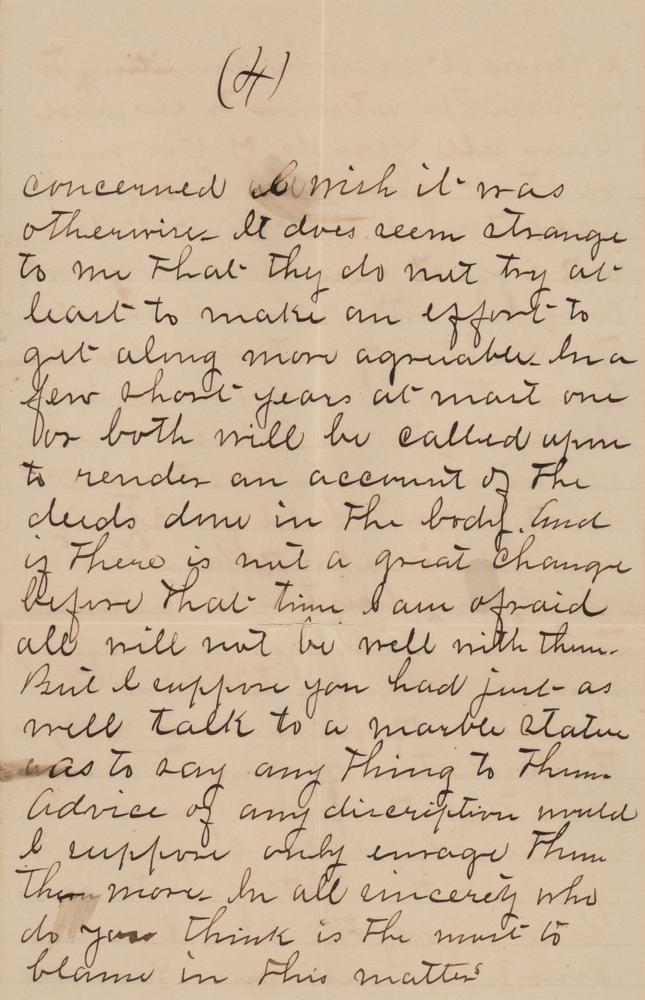 (4)
concerned I wish it was
otherwise. It does seem strange
to me that they do not try at
least to make an effort to
get along more agreable. In a
few short years at most one
or both will be called upon
to render an account of the
deeds done in the body. And
if there is not a great change
before that time I am afraid
all will not be well with them.
But I suppose you had just as
well talk to a marble statue
as to say any thing to them.
Advice of any discription would
I suppose only enrage them
the more. In all sincerety who
do you think is the most to
blame in this matter